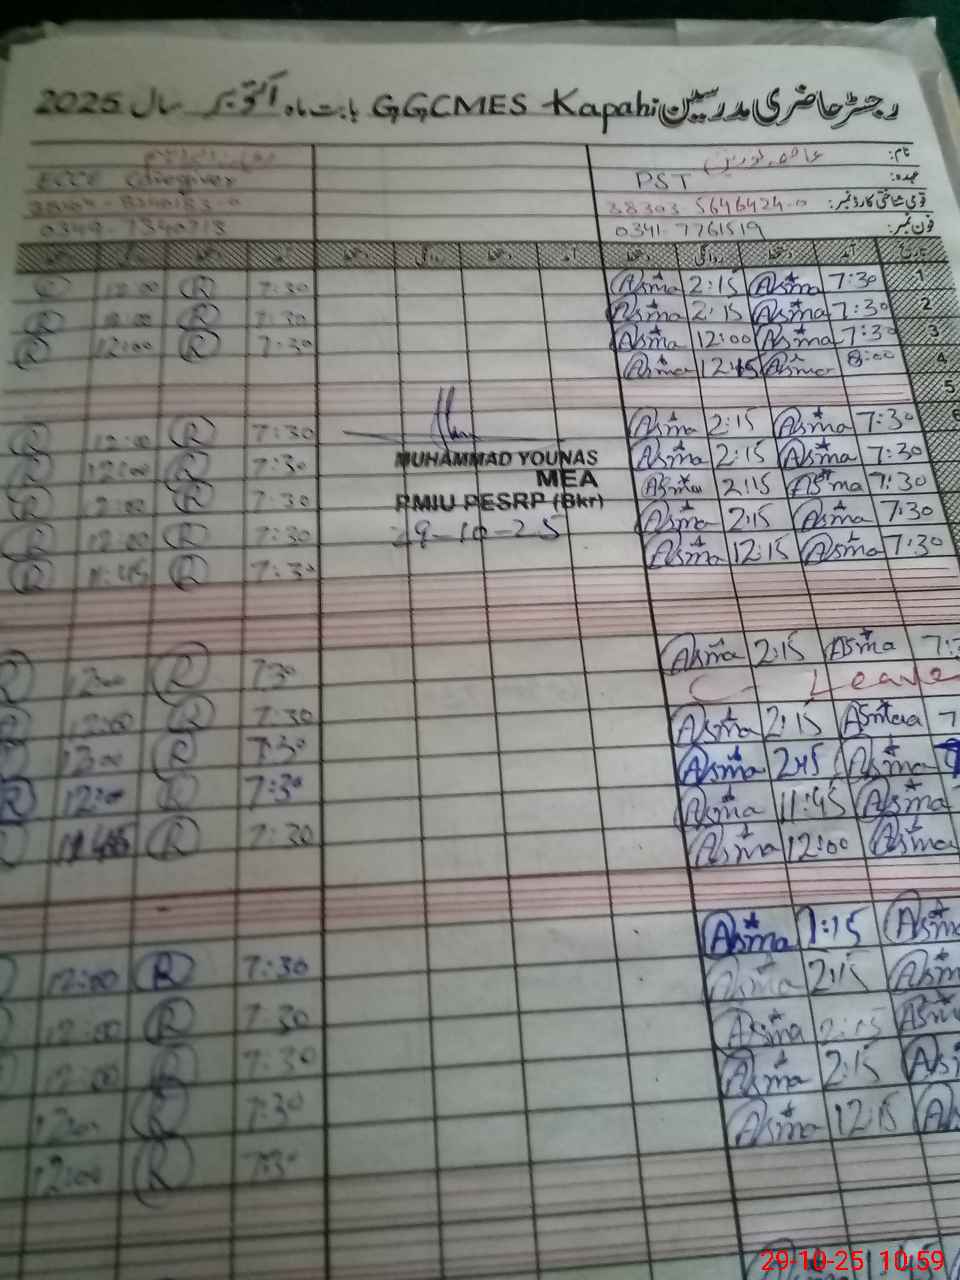 رجسٹر حاضری مدرسین GGCMES Kapahi بابت ماہ اکتوبر سال 2025
نام: عاصمہ نورین
عہدہ: PST ECCE Caregiver
قومی شناختی کارڈ نمبر: 38303-5646424-0
فون نمبر: 0341-7761519 0349-7340713
تاریخ آمد دستخط روانگی دستخط آمد دستخط روانگی دستخط
1 7:30 Asma 2:15 Asma 7:30 R 12:00
2 7:30 Asma 2:15 Asma 7:30 R 12:00 R
3 7:30 Asma 12:00 Asma 7:30 R 12:00 R
4 8:00 Asma 12:45 Asma
5
6 7:30 Asma 2:15 Asma 7:30 R 12:00 R
7:30 Asma 2:15 Asma 7:30 R 12:00 R
7:30 Asma 2:15 Asma 7:30 R 12:00 R
7:30 Asma 2:15 Asma 7:30 R 12:00
7:30 Asma 12:15 Asma 7:30 R 11:45 R
MUHAMMAD YOUNAS
MEA
PMIU PESRP (Bkr)
29-10-25
Asma 2:15 Asma 7:30 R R
C Leave
Asma 2:15 Asma 7:30 R 12:00
Asma 2:45 Asma 7:30 R 12:00
Asma 11:45 Asma 7:30 R 12:00 R
Asma 12:00 Asma 7:30 R 11:45
Asma 1:15 Asma
Asma 2:15 Asma 7:30 R 12:00
Asma 2:15 Asma 7:30 R 12:00
Asma 2:15 7:30 R 12:00
Asma 12:15 7:30 R 12:00
7:30 R 12:00
29-10-25 10:59